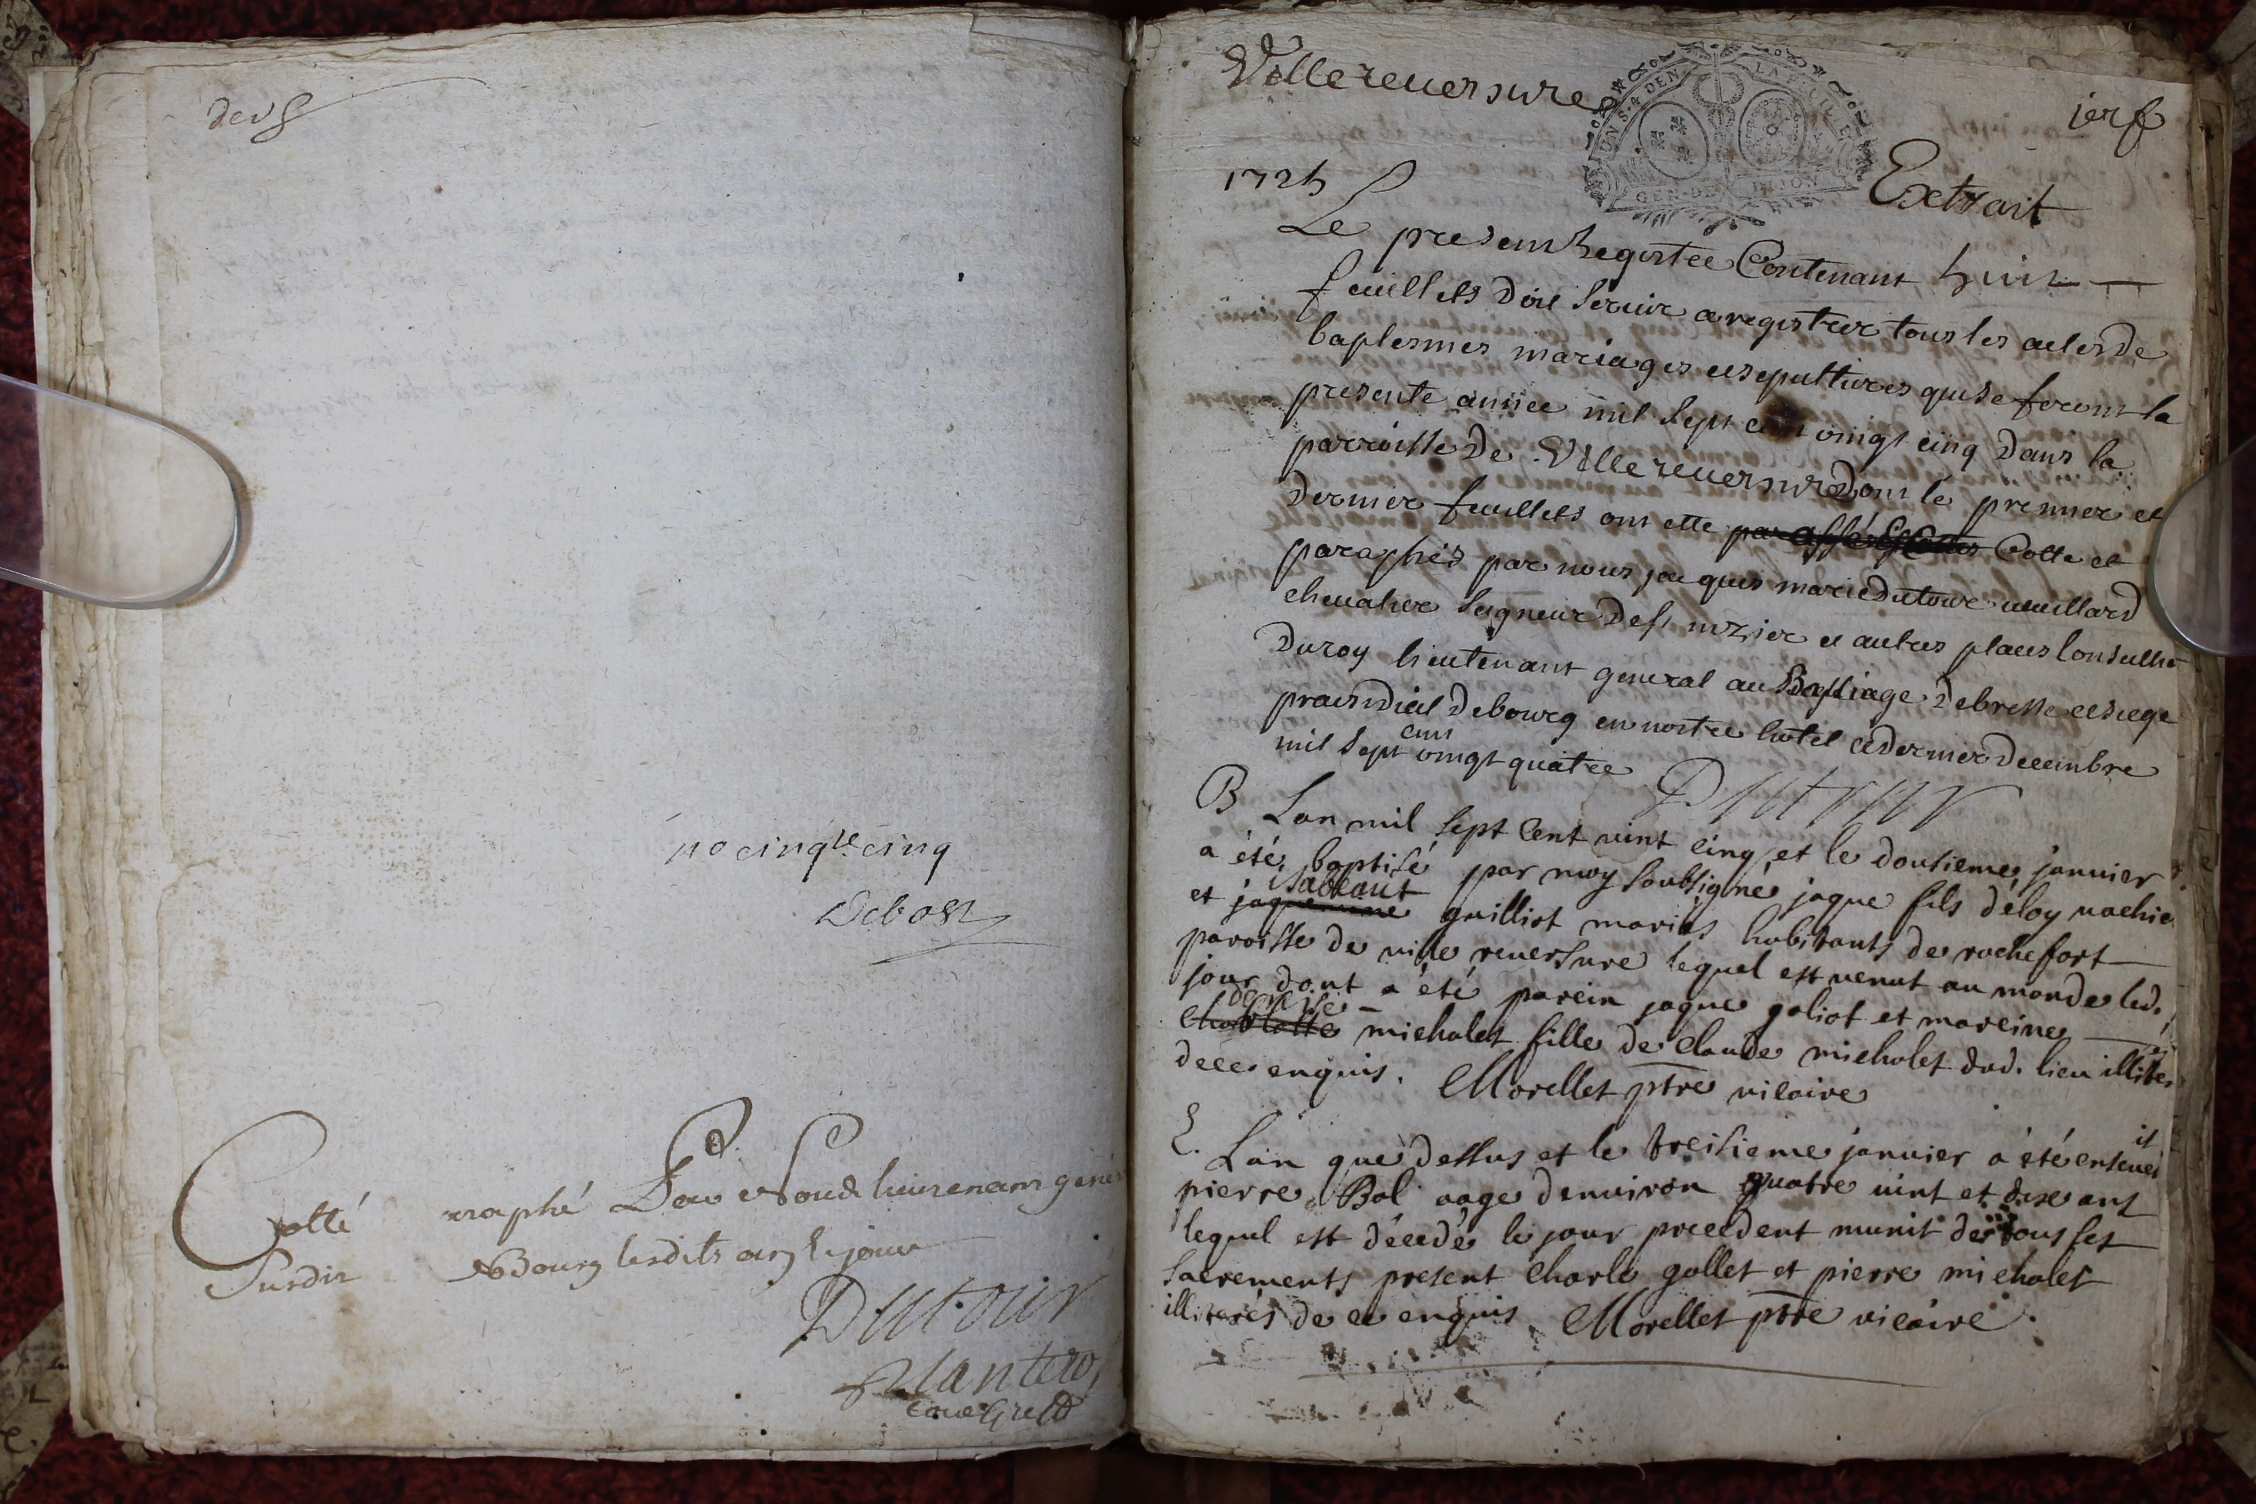 no cinqte cinq
Debost
Cotté
raphé
Dutour
Villereuersure
ier f
1725
Extrait
Le present Registre Contenant huit
feuillets doit seruir a registrer tous les actes de
baptesmes mariages et sepultures qui se feront la
presente année mil sept cent vingt cinq dans la
parroisse de Villereuersure dont le premier et
dernier feuillets ont esté Cotte et
paraphés par nous jacques marie dutour uuillard
cheualier seigneur de st nizier et autres places Conseiller
du roy lieutenant general au Bailliage de bresse et siege
praesidial de bourg en nostre hotel ce dernier decembre
mil sept cent vingt quatre
Dutour
B Lan mil sept Cent vint cinq et le dousieme januier
a été baptisé par moy soubsigné jaque fils d'éloy uachie
et jaquemine isabeaut guilliot mariés habitants de rochefort
paroisse de ville reuersure lequel est uenut au monde led.
jour dont a été parein jaque goliot et mareine
denise michalet fille de Claude michalet dud. lieu illiterés
de ce enquis. Morellet ptre vicaire
E. Lan que dessus et le treisieme januier a été enseueli
pierre Bal aage denuiron quatre vint et dixe ans
lequel est décedé le jour precedent munit de tous ses
sacrements present Charle gollet et pierre michalet
illiterés de ce enquis Morellet ptre vicaire